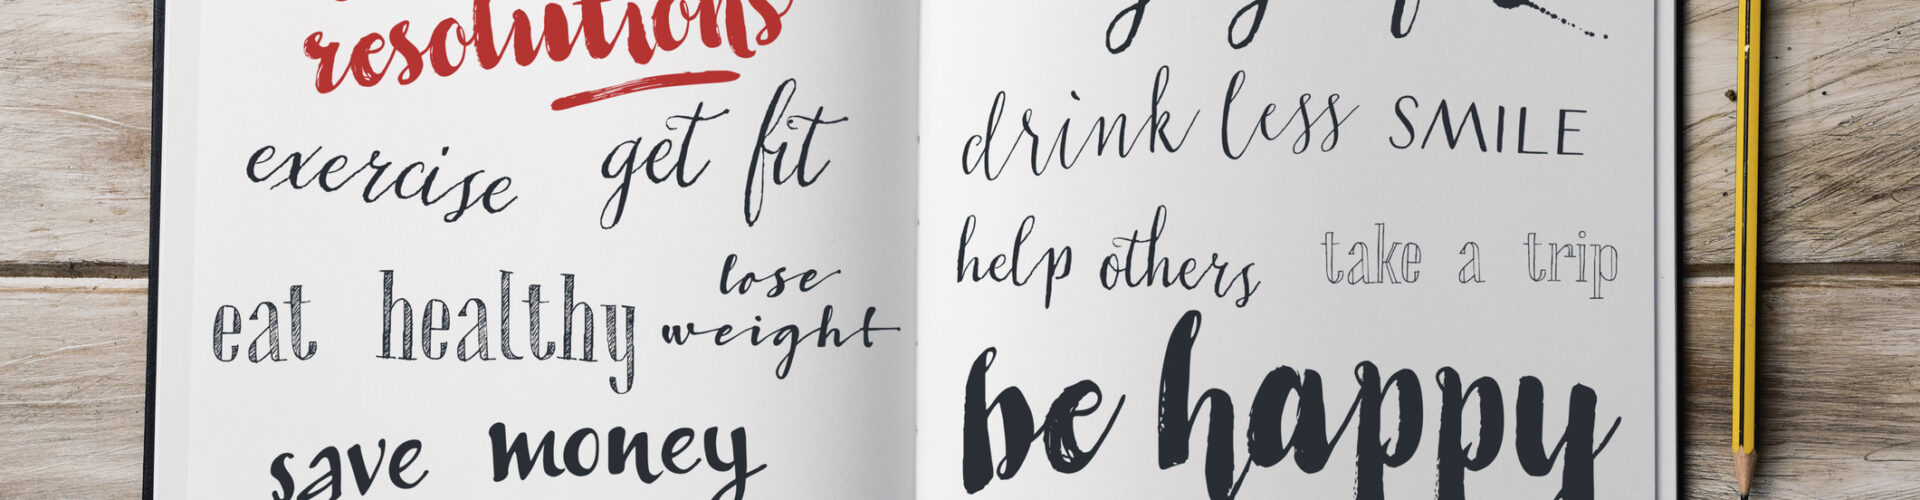 resolutions
exercise get fit
eat healthy lose weight
save money
drink less SMILE
help others take a trip
be happy